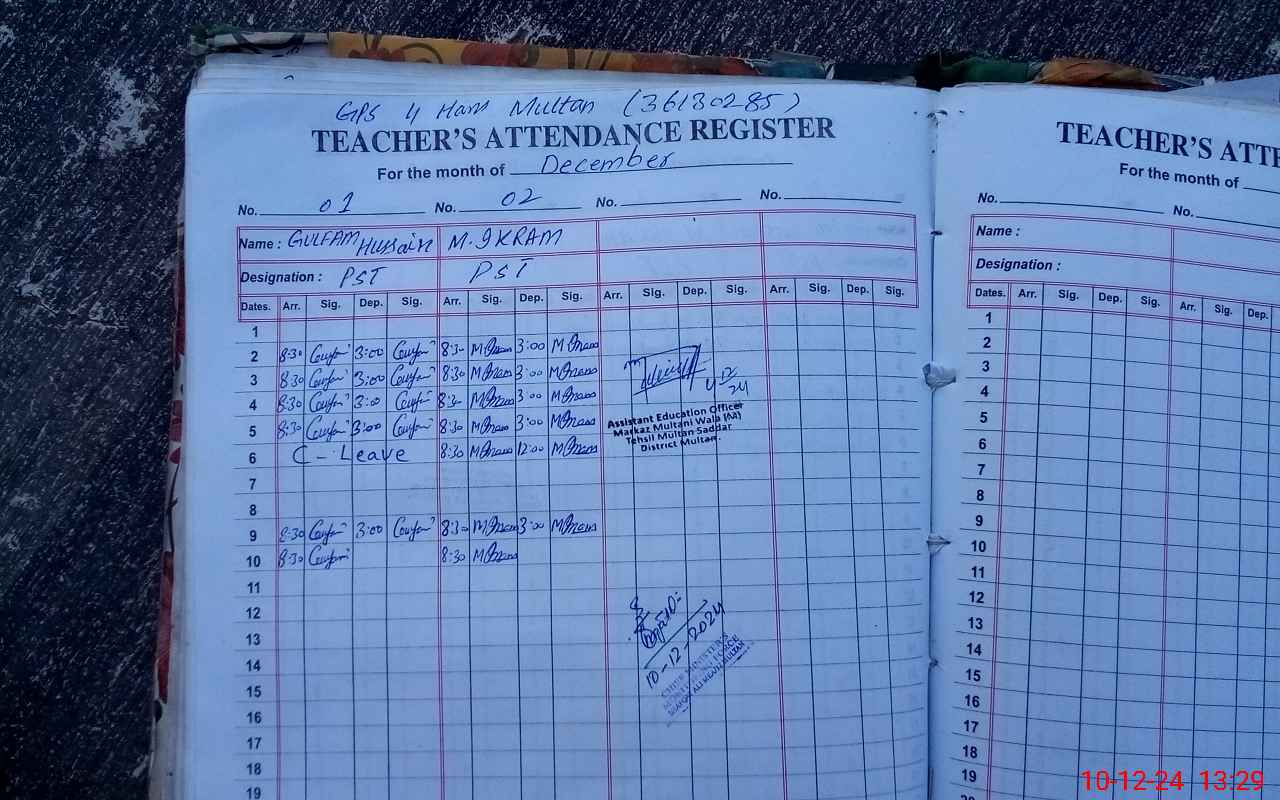 GPS 4 Ham Multan (36130285)
TEACHER'S ATTENDANCE REGISTER
For the month of December
No. 01 No. 02 No. No.
Name : GULFAM Hussain M. IKRAM
Designation : PST PST
Dates. Arr. Sig. Dep. Sig. Arr. Sig. Dep. Sig. Arr. Sig. Dep. Sig. Arr. Sig. Dep. Sig.
1
2 8:30 3:00 8:30 3:00
3 8:30 3:00 8:30 3:00
4 8:30 3:00 8:30 3:00
5 8:30 3:00 8:30 3:00
6 C - Leave 8:30 12:00
7
8
9 8:30 3:00 8:30 3:00
10 8:30 8:30
11
12
13
14
15
16
17
18
19
4/12/24
Assistant Education Officer
Markaz Multani Wala (M)
Tehsil Multan Saddar
District Multan.
10-12-2024
CHIEF MINISTER'S
TEACHER'S ATTE
For the month of
No. No.
Name :
Designation :
Dates. Arr. Sig. Dep. Sig. Arr. Sig. Dep.
1
2
3
4
5
6
7
8
9
10
11
12
13
14
15
16
17
18
19
10-12-24 13:29